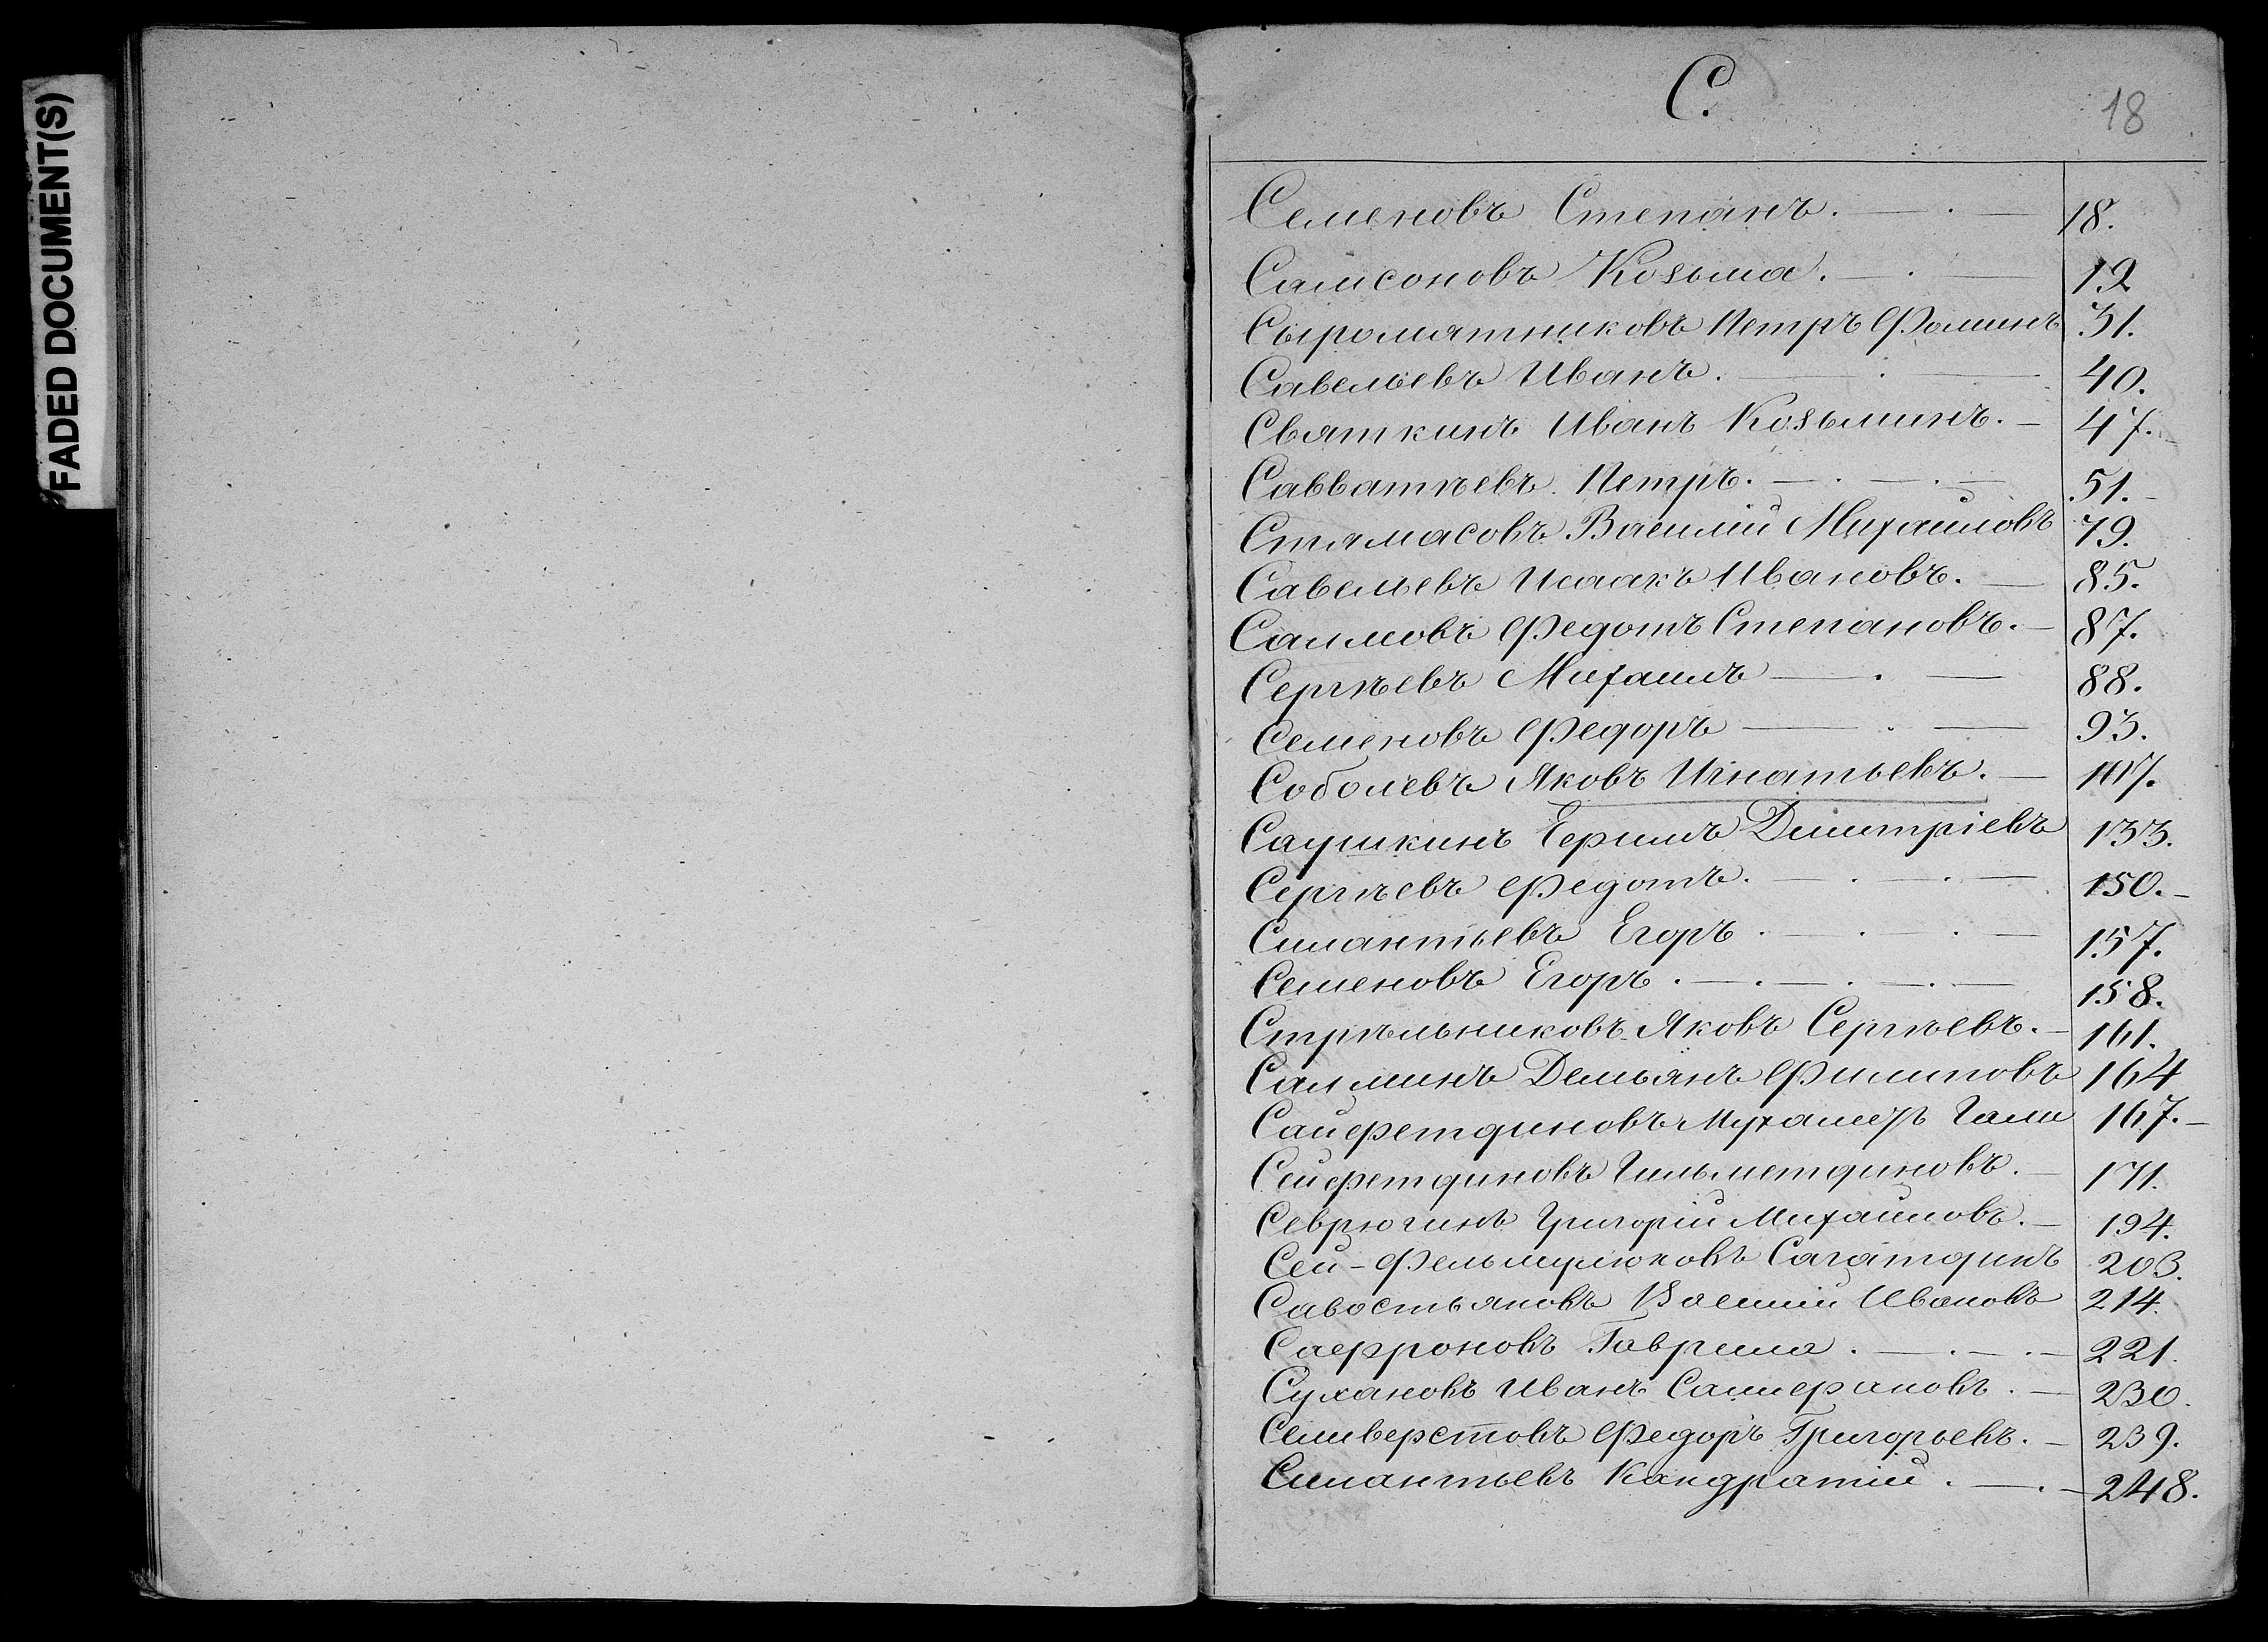 FADED DOCUMENT(S)
С.
18
Семеновъ Степанъ. 18.
Самсоновъ Козьма. 19
Сыромятниковъ Петръ Фоминъ 31.
Савельевъ Иванъ. 40.
Святкинъ Иванъ Козьминъ. 47.
Савватѣевъ Петръ. 51.
Стямасовъ Василій Михайловъ 79.
Савельевъ Исаакъ Ивановъ. 85.
Саимовъ Федотъ Степановъ. 87.
Сергѣевъ Михаилъ 88.
Семеновъ Федоръ 93.
Соболевъ Яковъ Игнатьевъ. 107.
Саушкинъ Дмитріевъ 133.
Сергѣевъ Федотъ. 150.
Силантьевъ Егоръ 157.
Семеновъ Егоръ. 158.
Стрѣльниковъ Яковъ Сергѣевъ. 161.
Салминъ Демьянъ Филиповъ 164
Сайфетдиновъ Гали 167.
Сейфетдиновъ Гильметдиновъ. 171.
Севрюгинъ Григорій Михайловъ. 194.
Сей- Сагатдинъ 203.
Савостьяновъ Василій Ивановъ 214.
Сафроновъ Гаврила. 221.
Сухановъ Иванъ 230.
Селиверстовъ Федоръ Григорьевъ. 239.
Силантьевъ Кандратій. 248.